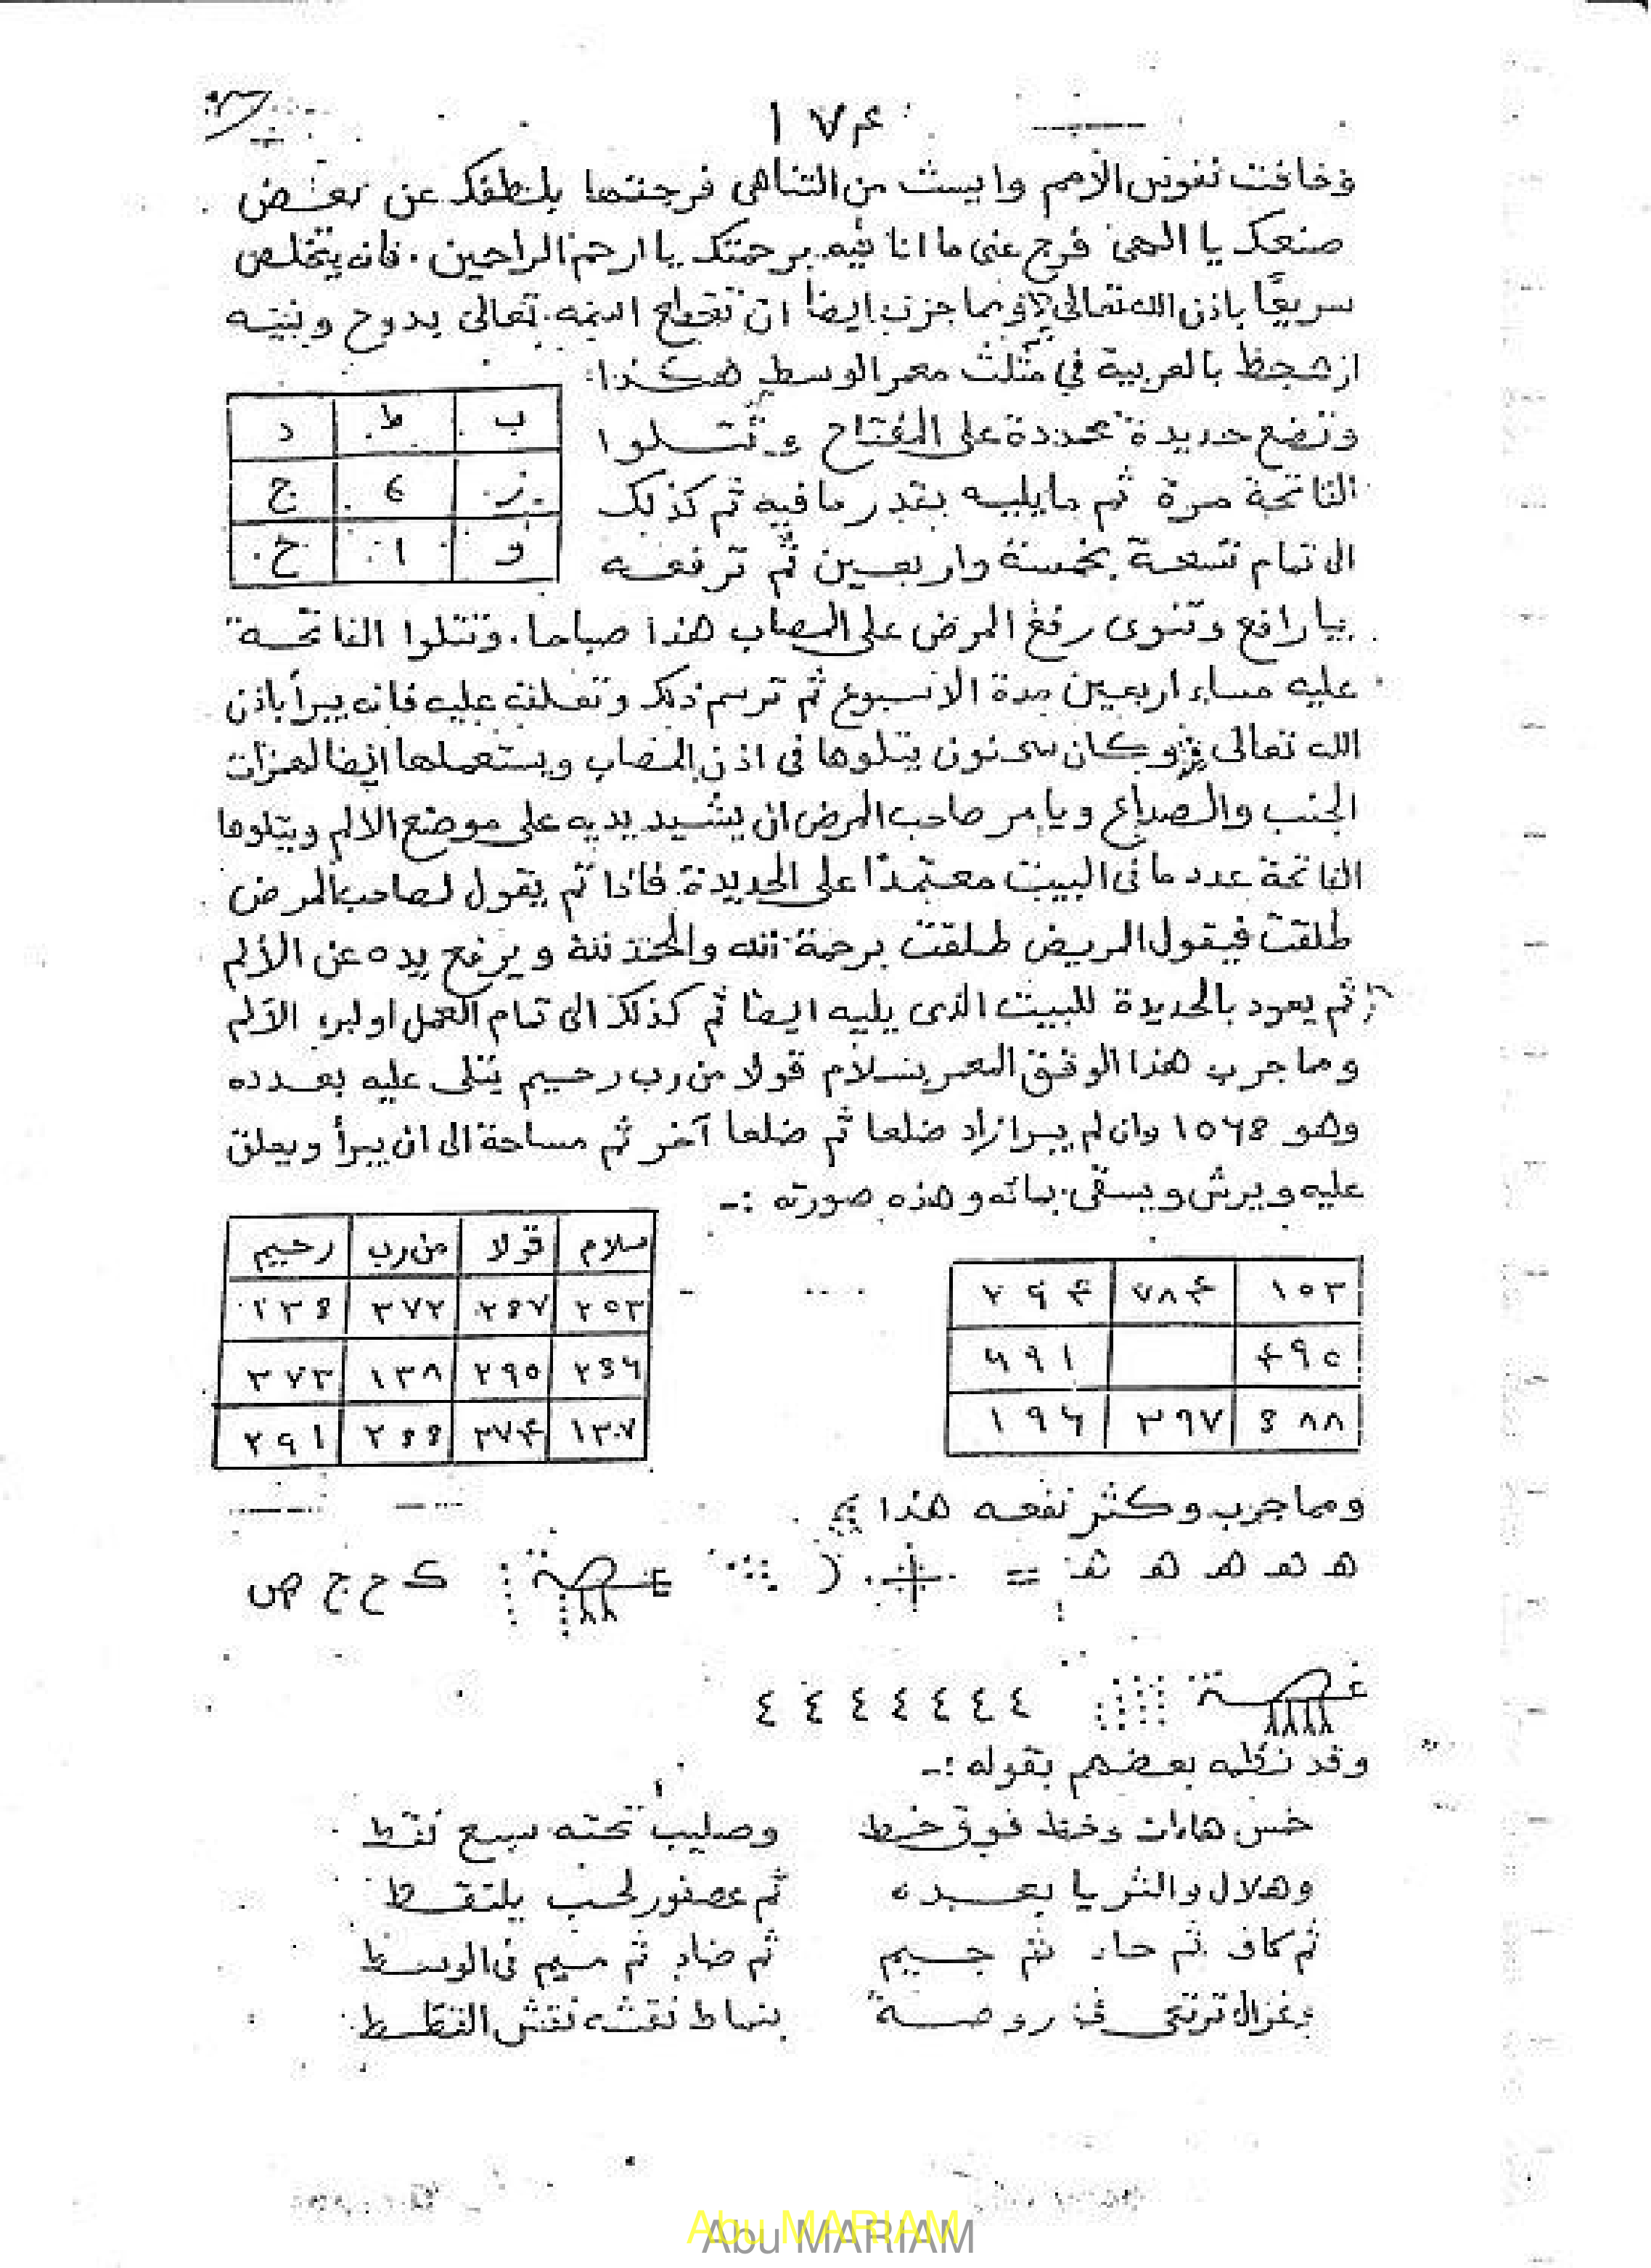 ١٧٤
وخافت نفوس الأمم وايست من التناهى فرجتها بلطفك عن بعض
صنعك يا الهى فرج عنى ما انا فيه برحمتك يا ارحم الراحمين . فانه يتخلص
سريعًا باذن الله تعالى ومما جرب ايضا ان تقطع اسمه تعالى بدوح وبنيه
ازهجظ بالعربية في مثلث معمر الوسط هكذا:
ب ط د
وتضع حديدة محددة على المفتاح وتتلوا
ز ٥ ج
الفاتحة مرة ثم ما يليه بقدر ما فيه ثم كذلك
و ا ح
الى تمام تسعة بخمسة واربعين ثم ترفعه
بيا رافع وتنوى رفع المرض على المصاب هذا صباحا . وتتلوا الفاتحة
عليه مساء اربعين مدة الاسبوع ثم ترسم ذلك وتعلقه عليه فانه يبرأ باذن
الله تعالى وكان سحنون يتلوها فى اذن المصاب ويستعملها ايضا لهمزات
الجنب والصداع ويامر صاحب المرض ان يشيد يديه على موضع الالم ويتلوها
الفاتحة عدد ما فى البيت معتمدًا على الحديدة فاذا تم يقول لصاحب المرض
طلقت فيقول المريض طلقت برحمة الله ويرفع يده عن الألم
ثم يعود بالحديدة للبيت الذى يليه ايضا ثم كذلك الى تمام العمل اولبرء الالم
ومما جرب هذا الوفق المعمر بسلام قولا من رب رحيم يتلى عليه بعدده
وهو وان لم يبرا زاد ضلعا ثم ضلعا آخر ثم مساحة الى ان يبرأ ويعلق
عليه ويرش ويسقى بمائه وهذه صورته :-
١٠٣ ٧٨٤ ٢٩٤
٤٩٥ ٦٩١
٨٨ ٣٩٧ ١٩٦
سلام قولا من رب رحيم
٢٥٣ ٣٧٢
٢٩٥ ١٣٨ ٣٧٣
١٣٧ ٣٧٤ ٢٩١
ومما جرب وكثر نفعه هذا
ه ه ه ه ه = ك ح ج ص
٤ ٤ ٤ ٤ ٤ ٤ ٤
وقد نظمه بعضهم بقوله :-
خمس هاءات وخط فوق خط وصليب تحته سبع نقط
وهلال والثريا بعده ثم عصفور لحب يلتقط
ثم كاف ثم حاء ثم جيم ثم ضاد ثم ميم فى الوسط
وغزال ترتعى في روضة نقشه نقش النقط
Abu MARIAM
Abu MARIAM